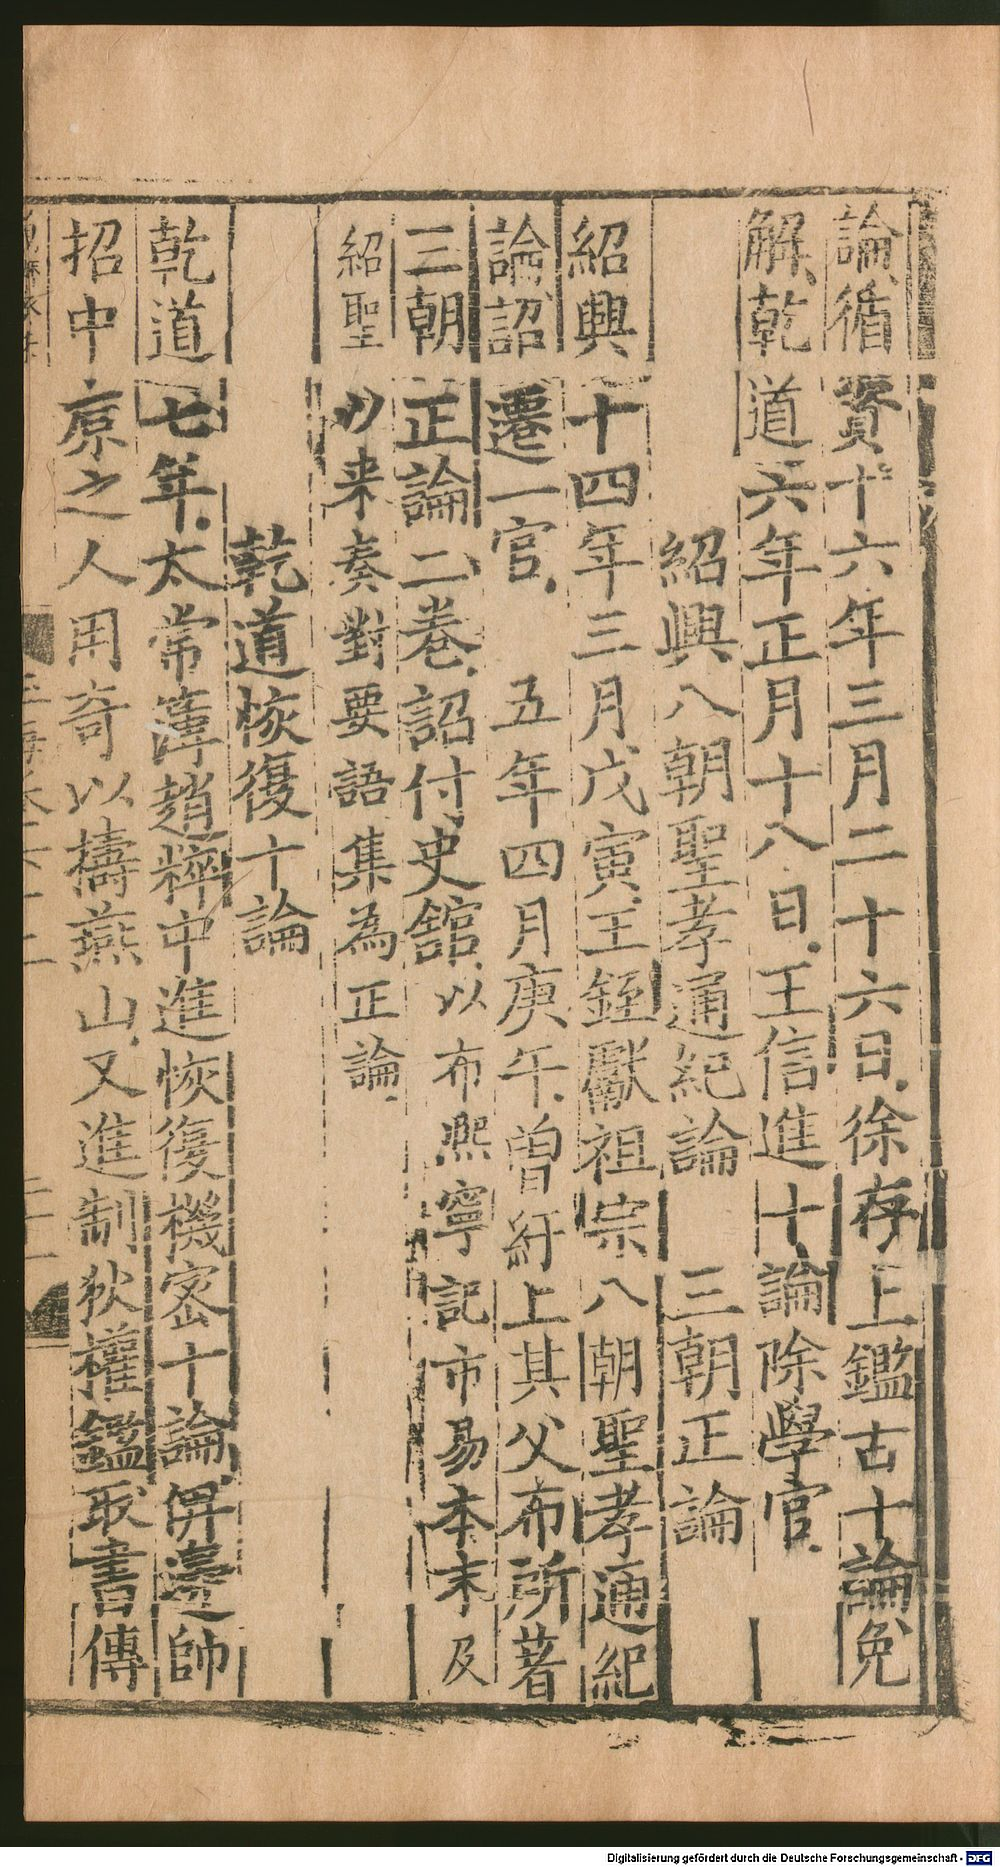 論循資十六年三月二十六日徐存上鑑古十論免
解乾道六年正月十八日王信進十論除學官
紹興八朝聖孝通紀論 三朝正論
紹興十四年三月戊寅王銍獻祖宗八朝聖孝通紀
論詔遷一官 五年四月庚午曾紆上其父布所著
三朝正論二卷詔付史館以布熙寧記市易本末及
紹聖以来奏對要語集為正論
乾道恢復十論
乾道七年太常簿趙粹中進恢復機密十論俾邊帥
招中原之人用奇以擣燕山又進制狄權鑑取書傳
Digitalisierung gefördert durch die Deutsche Forschungsgemeinschaft - DFG